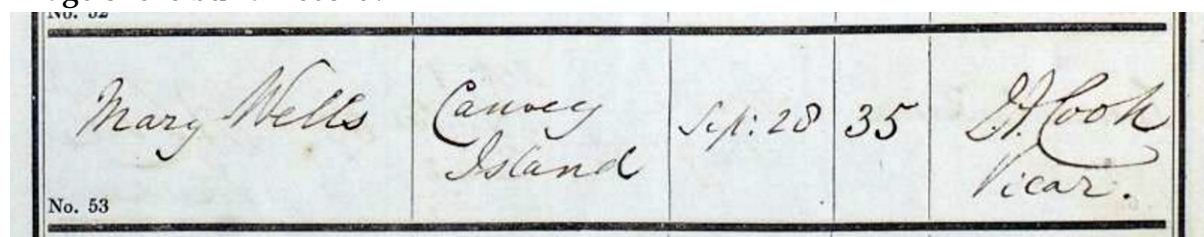 No. 52
Mary Wells
Canvey
Island
Sep: 28
35
Cook
Vicar.
No. 53